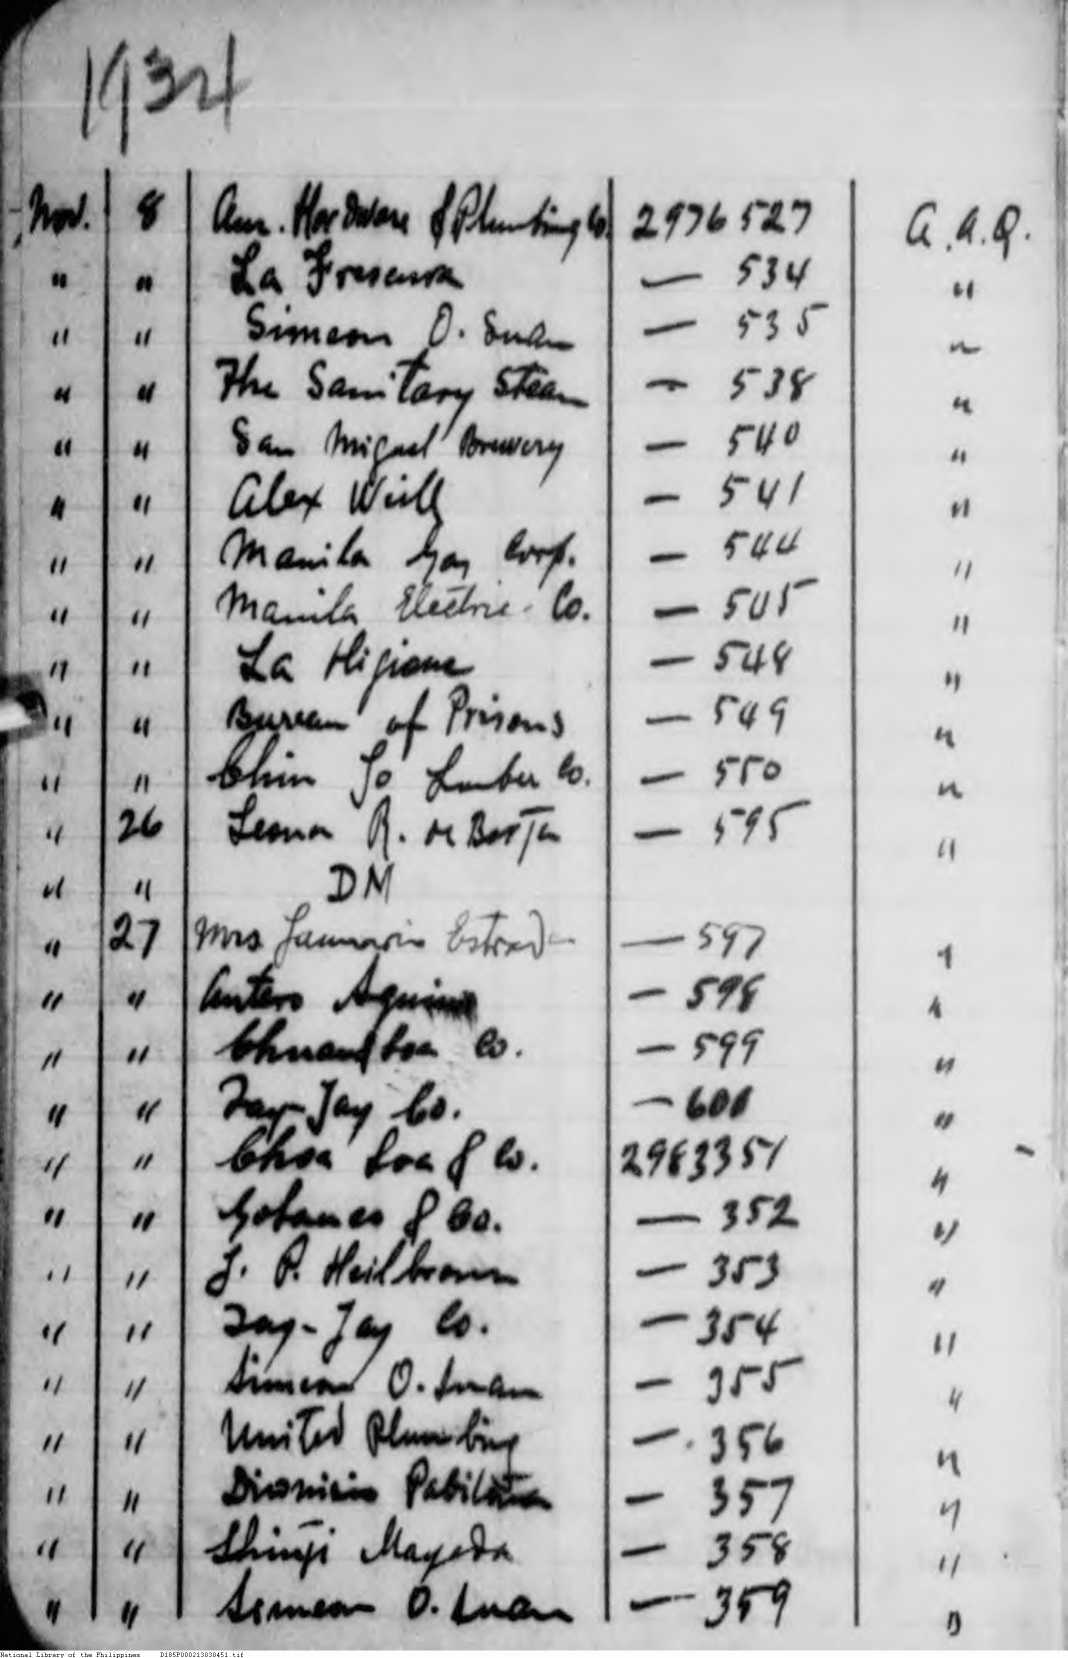 1934
Nov. 8 Am. Hardware & Plumbing Co. 2976527 A.A.Q.
" " La Fresenva — 534 "
" " Simeon O. Suan — 535 "
" " The Sanitary Steam — 538 "
" " San Miguel Brewery — 540 "
" " Alex Weill — 541 "
" " Manila Gas Corp. — 544 "
" " Manila Electric Co. — 545 "
" " La Higiene — 548 "
" " Bureau of Prisons — 549 "
" " Chin So Lumber Co. — 550 "
" 26 Leonor R. de Borja — 595 "
" " DM
" 27 Mrs Januario Estrada — 597 "
" " Antero Aquino — 598 "
" " Co. — 599 "
" " Tay-Jay Co. — 600 "
" " Choa Loa & Co. 2983351 "
" " Gotamco & Co. — 352 "
" " J. P. Heilbronn — 353 "
" " Tay-Jay Co. — 354 "
" " Simeon O. Suan — 355 "
" " United Plumbing — 356 "
" " Dionisio — 357 "
" " Shinji Mayeda — 358 "
" " Simeon O. Suan — 359 "
National Library of the Philippines D185P000213838451.tif